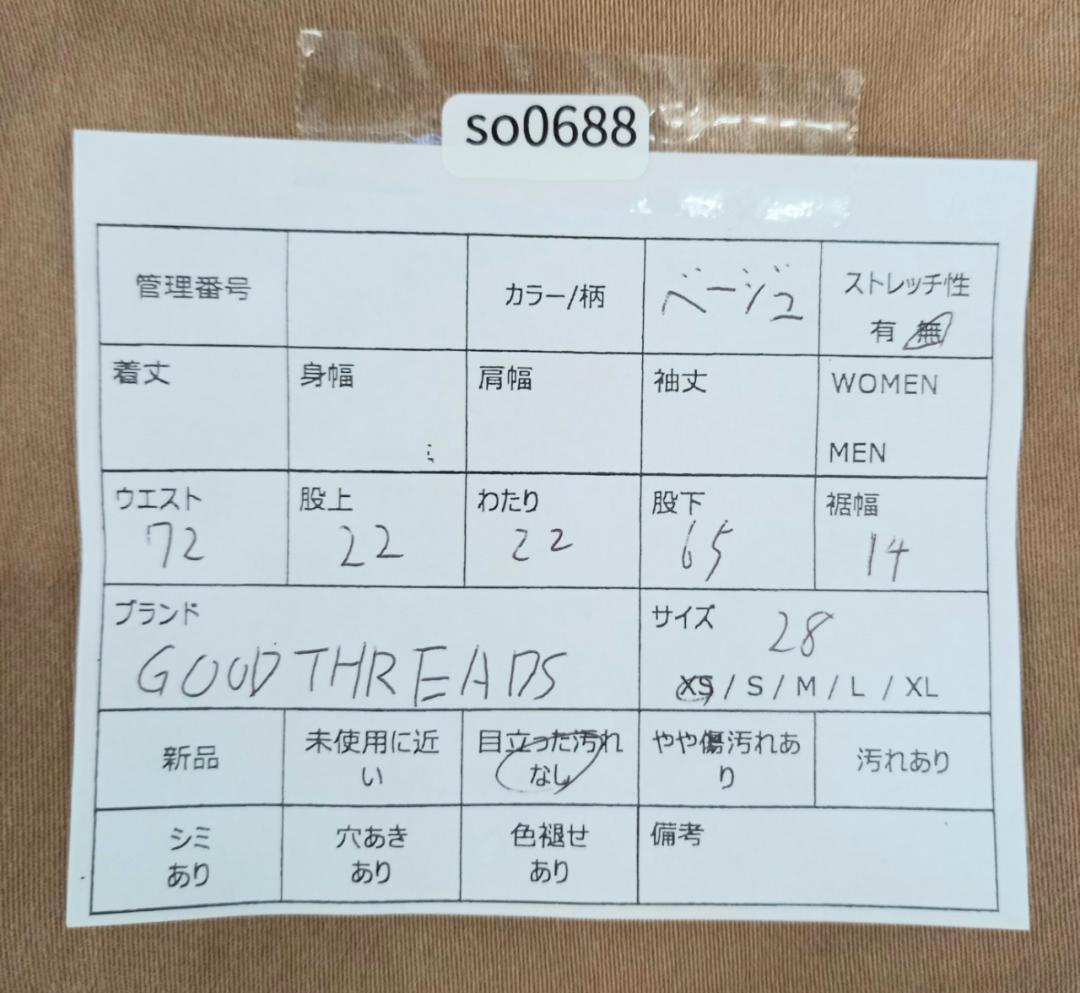 so0688
管理番号
カラー/柄
ベージュ
ストレッチ性
有 無
着丈
身幅
肩幅
袖丈
WOMEN
MEN
ウエスト
72
股上
22
わたり
22
股下
65
裾幅
14
ブランド
GOODTHREADS
サイズ
28
XS / S / M / L / XL
新品
未使用に近
い
目立った汚れ
なし
やや傷汚れあ
り
汚れあり
シミ
あり
穴あき
あり
色褪せ
あり
備考